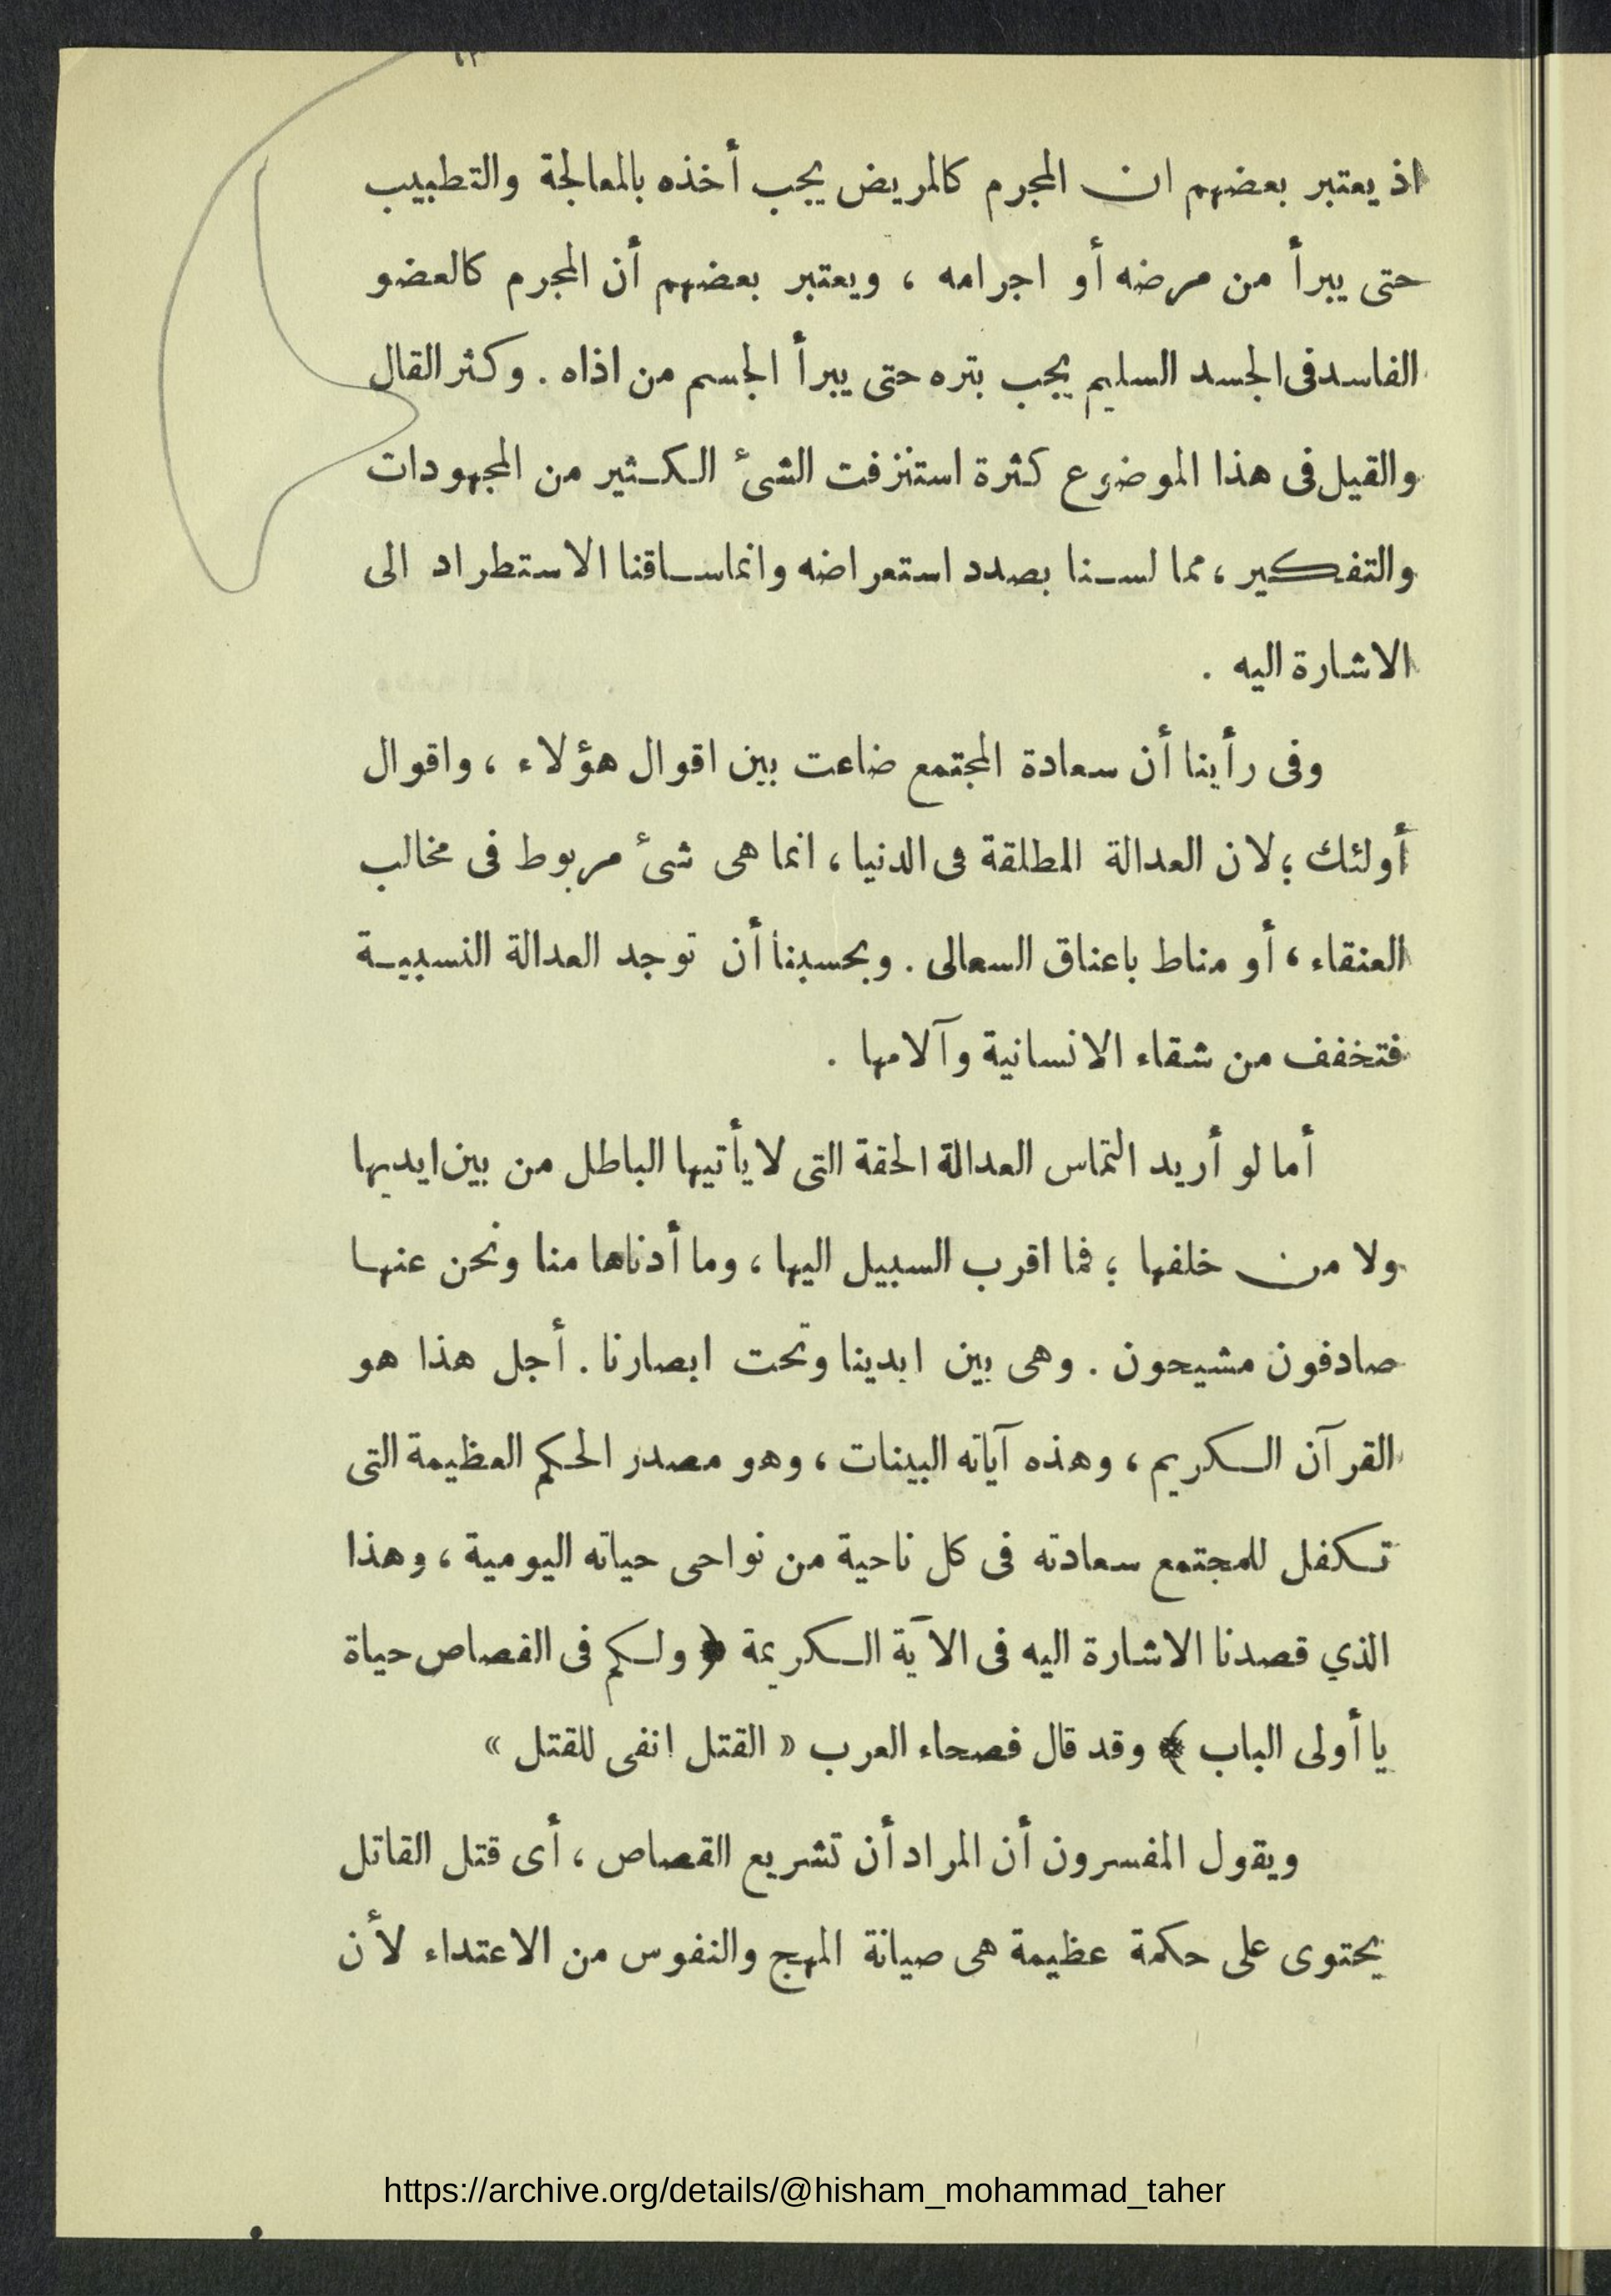 اذ يعتبر بعضهم ان المجرم كالمريض يجب أخذه بالمعالجة والتطبيب
حتى يبرأ من مرضه أو اجرامه ، ويعتبر بعضهم أن المجرم كالعضو
الفاسد فى الجسد السليم يجب بتره حتى يبرأ الجسم من اذاه . وكثر القال
والقيل فى هذا الموضوع كثرة استنزفت الشىء الكثير من المجهودات
والتفكير ، مما لسنا بصدد استعراضه وانما ساقنا الاستطراد الى
الاشارة اليه .
وفى رأينا أن سعادة المجتمع ضاعت بين اقوال هؤلاء ، واقوال
أولئك ؛ لان العدالة المطلقة فى الدنيا ، انما هى شىء مربوط فى مخالب
العنقاء ، أو مناط باعناق السعالى . وبحسبنا أن توجد العدالة النسبية
فتخفف من شقاء الانسانية وآلامها .
أما لو أريد التماس العدالة الحقة التى لا يأتيها الباطل من بين ايديها
ولا من خلفها ؛ فما اقرب السبيل اليها ، وما أدناها منا ونحن عنها
صادفون مشيحون . وهى بين ايدينا وتحت ابصارنا . أجل هذا هو
القرآن الكريم ، وهذه آياته البينات ، وهو مصدر الحكم العظيمة التى
تكفل للمجتمع سعادته فى كل ناحية من نواحى حياته اليومية ، وهذا
الذي قصدنا الاشارة اليه فى الآية الكريمة ﴿ ولكم فى القصاص حياة
يا أولى الباب ﴾ وقد قال فصحاء العرب « القتل انفى للقتل »
ويقول المفسرون أن المراد أن تشريع القصاص ، أى قتل القاتل
يحتوى على حكمة عظيمة هى صيانة المهج والنفوس من الاعتداء لأن
https://archive.org/details/@hisham_mohammad_taher